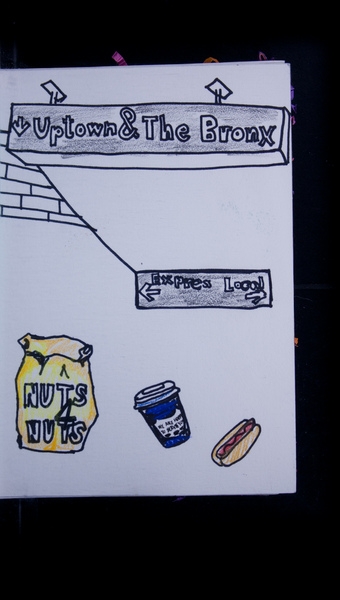 Uptown & The Bronx
Expres Local
NUTS
4
NUTS
WE ARE HAPPY